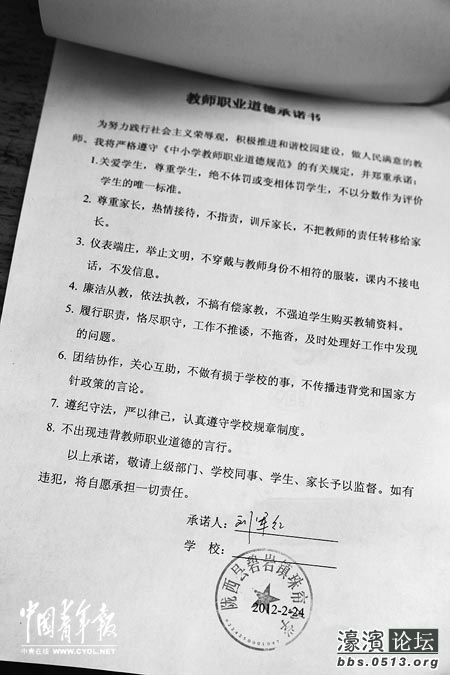 教师职业道德承诺书
为努力践行社会主义荣辱观，积极推进和谐校园建设，做人民满意的教
师，我将严格遵守《中小学教师职业道德规范》的有关规定，并郑重承诺：
1.关爱学生，尊重学生，绝不体罚或变相体罚学生，不以分数作为评价
学生的唯一标准。
2. 尊重家长，热情接待，不指责，训斥家长，不把教师的责任转移给家
长。
3. 仪表端庄，举止文明，不穿戴与教师身份不相符的服装，课内不接电
话，不发信息。
4. 廉洁从教，依法执教，不搞有偿家教，不强迫学生购买教辅资料。
5. 履行职责，恪尽职守，工作不推诿，不拖沓，及时处理好工作中发现
的问题。
6. 团结协作，关心互助，不做有损于学校的事，不传播违背党和国家方
针政策的言论。
7. 遵纪守法，严以律己，认真遵守学校规章制度。
8. 不出现违背教师职业道德的言行。
以上承诺，敬请上级部门、学校同事、学生、家长予以监督。如有
违犯，将自愿承担一切责任。
承诺人：刘军红
学 校：
陇西县碧岩镇珠帘
2012-2-24
中国青年报
中青在线 WWW.CYOL.NET
濠滨论坛
bbs.0513.org